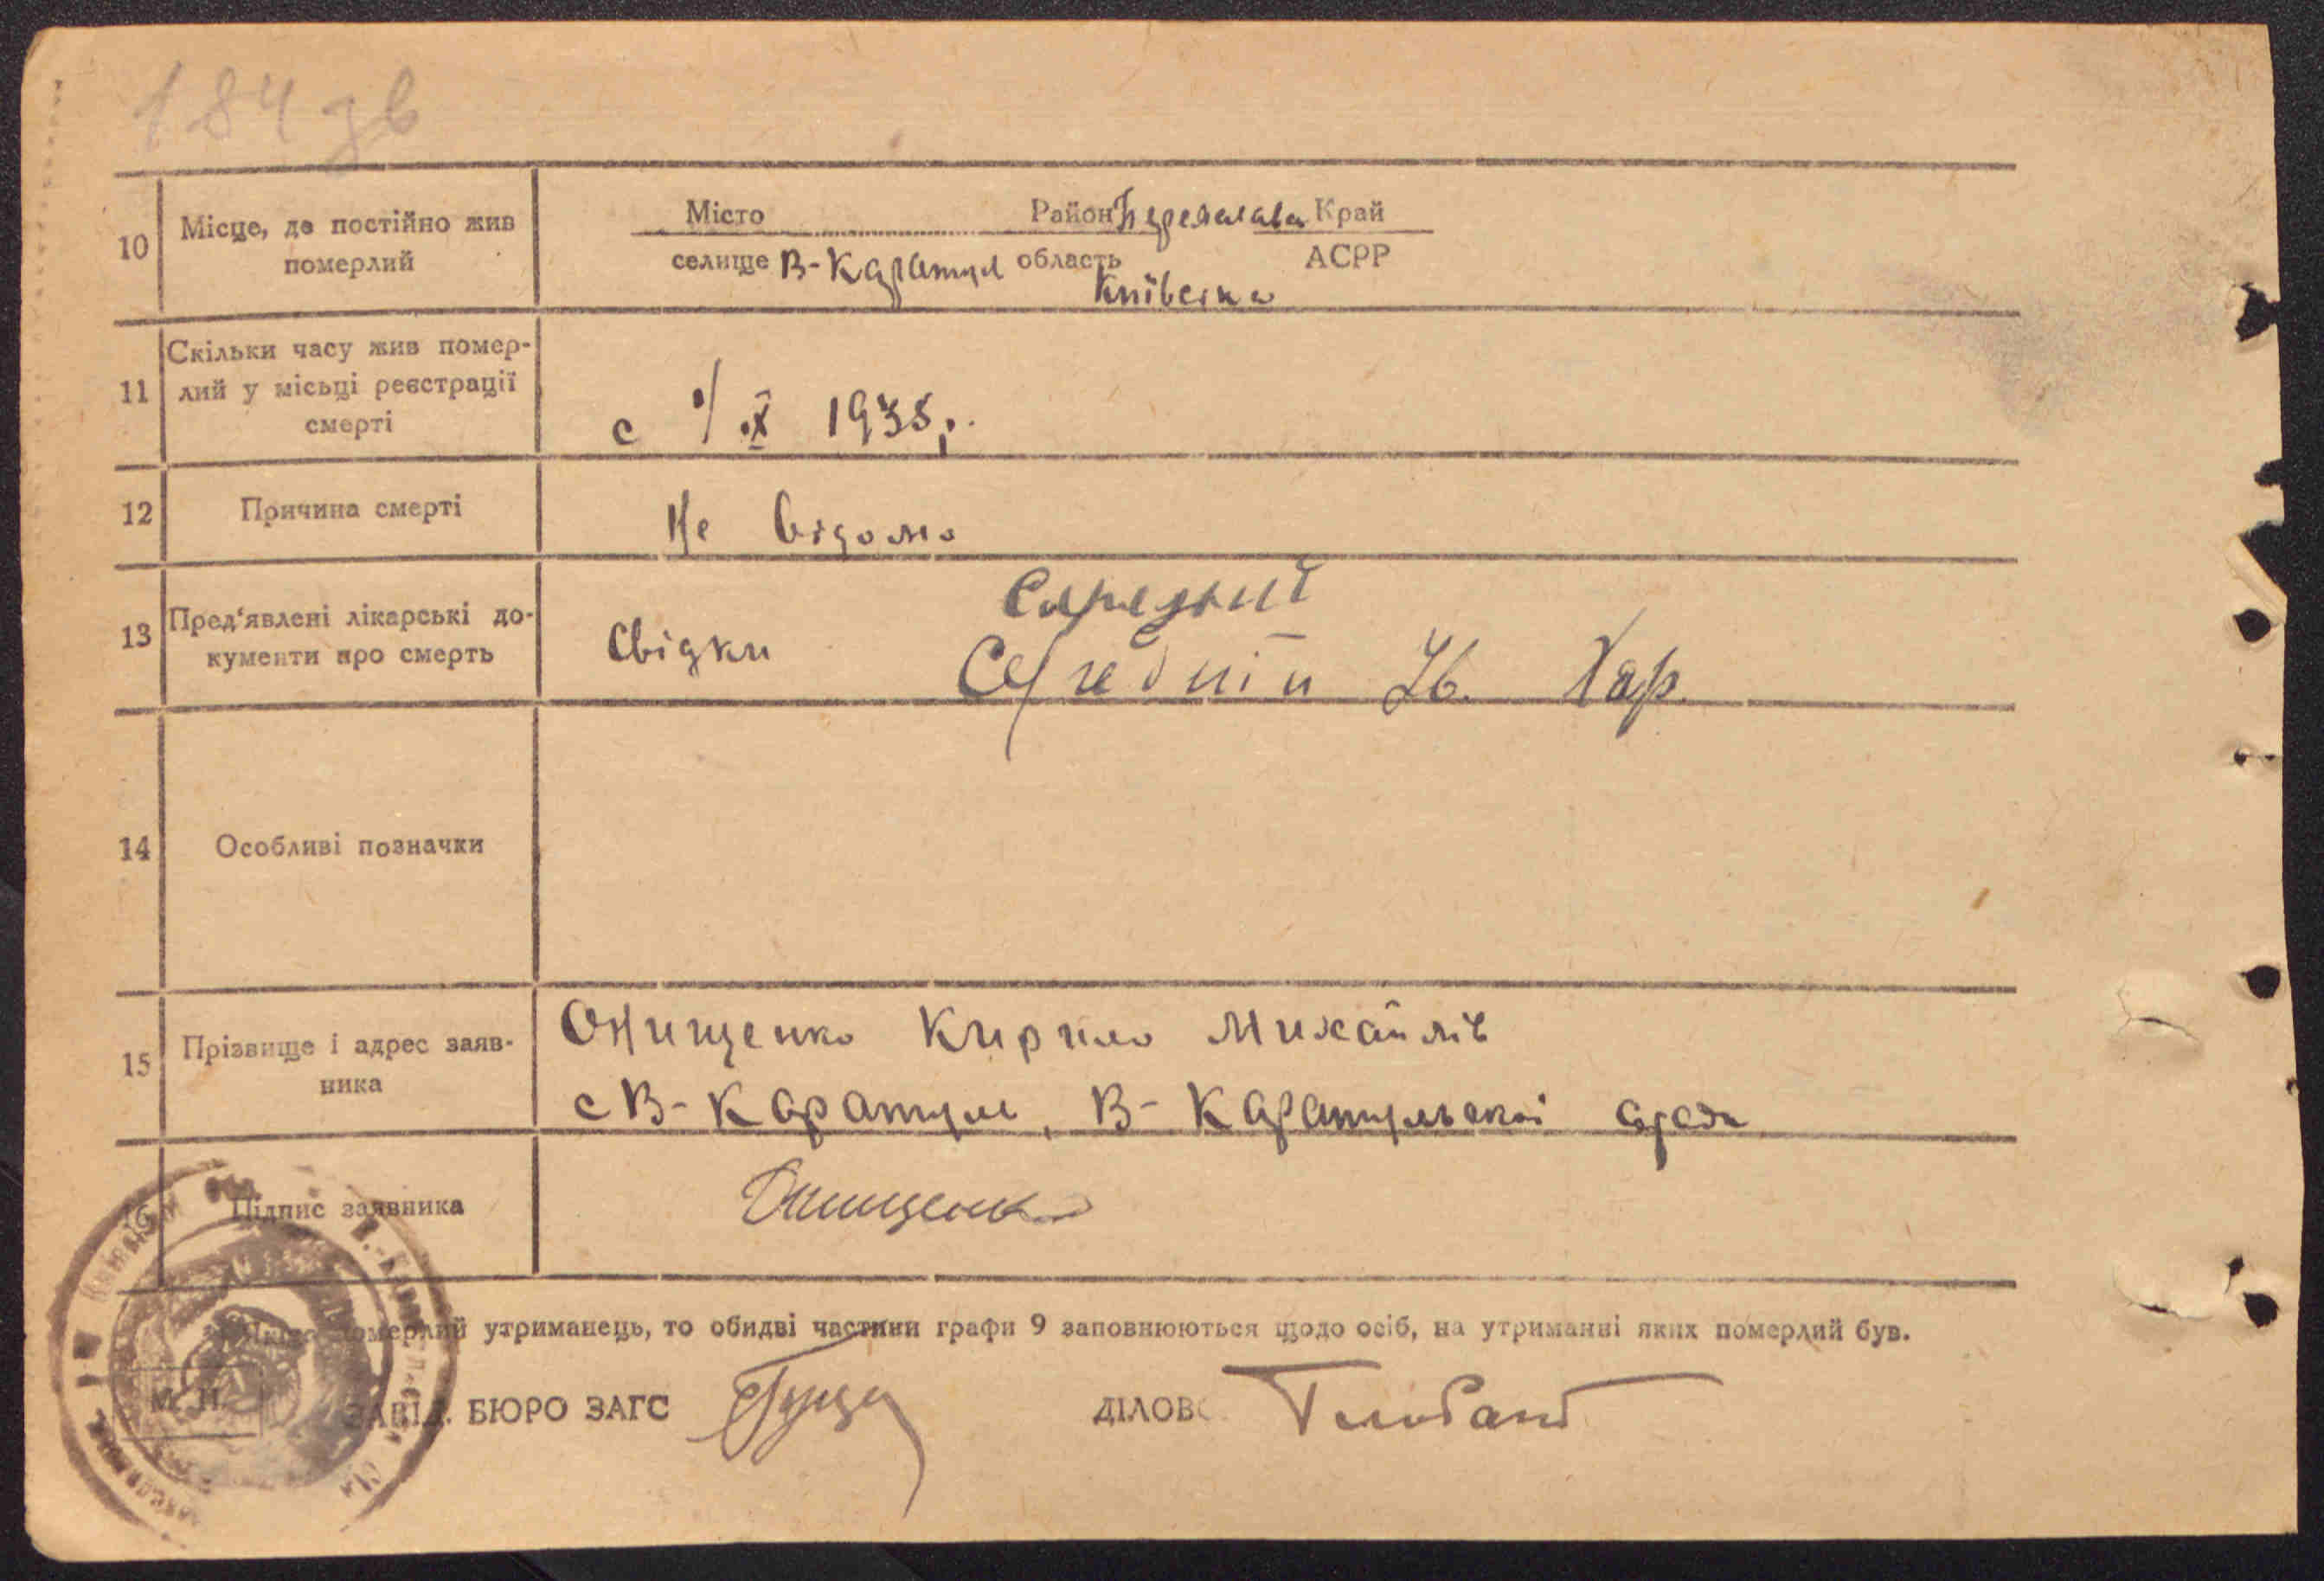 184 зв
10 Місце, де постійно жив
померлий
Місто Район Переяслав Край
селище В-Каратул область АСРР
Київська
11 Скільки часу жив помер-
лий у місьці реєстрації
смерті
с 1/X 1935р.
12 Причина смерті
Не відомо
13 Пред'явлені лікарські до-
кументи про смерть
Свідки
Середній
Середній Ів. Хар.
14 Особливі позначки
15 Прізвище і адрес заяв-
ника
Онищенко Кирило Михайлів
с В-Каратул, В-Каратульскої
16 Підпис заявника
Онищенко
померлий утриманець, то обидві частини графи 9 заповнюються щодо осіб, на утриманні яких померлий був.
М. П.
ЗАВІД. БЮРО ЗАГС
ДІЛОВ